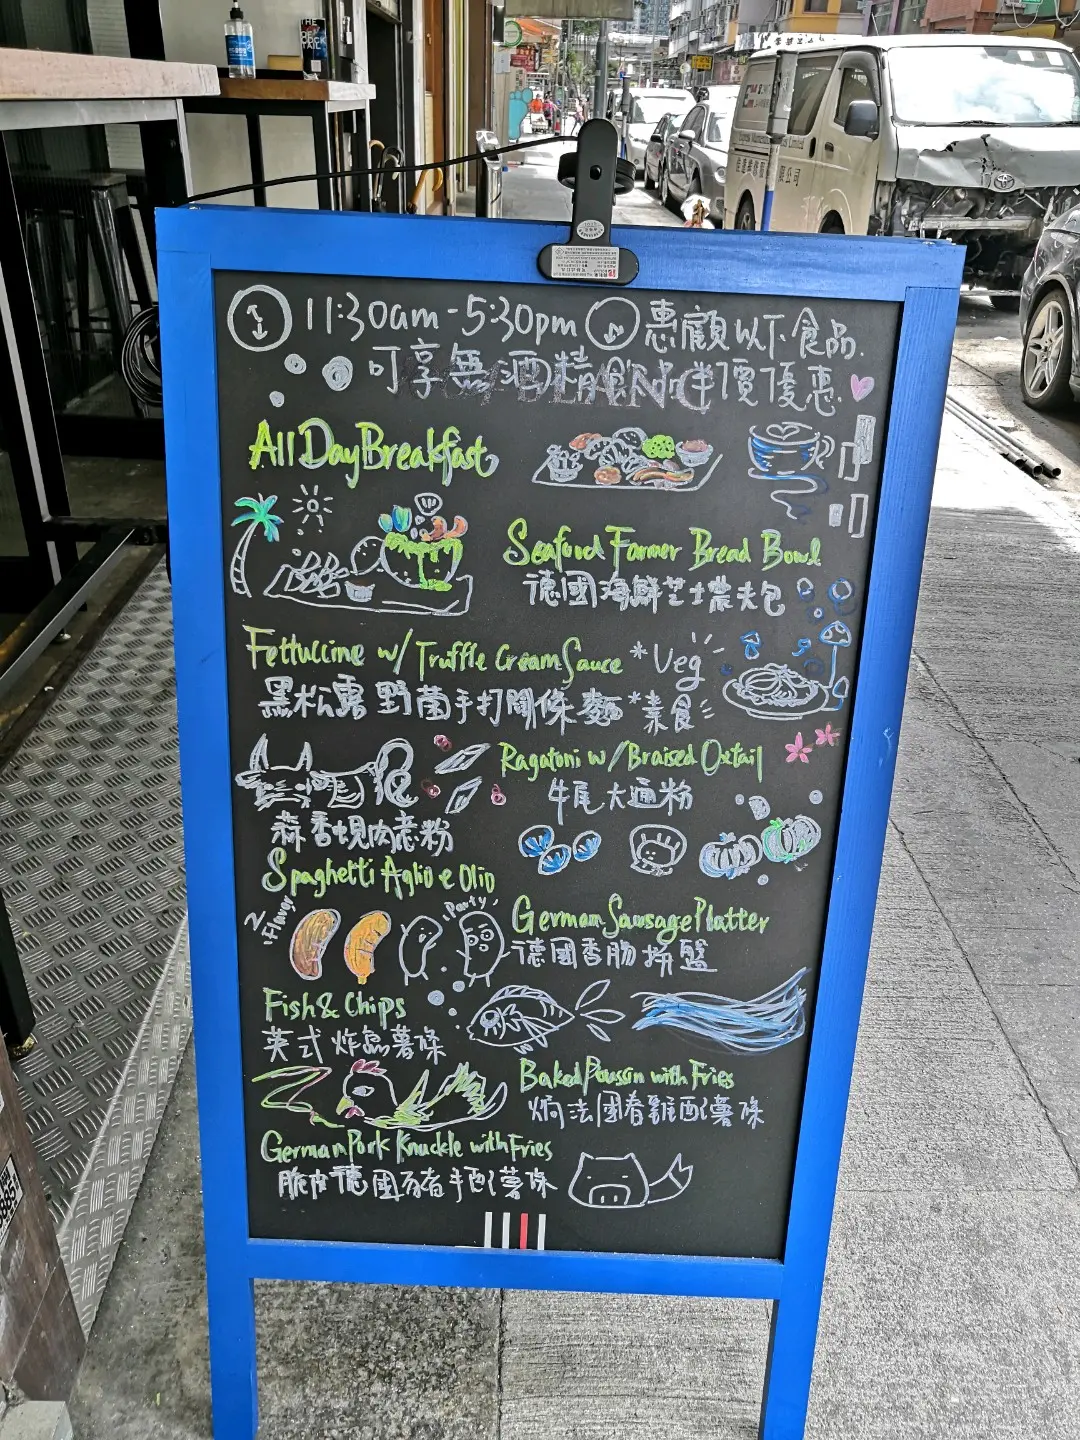 11:30am - 5:30pm 惠顧以下食品.
可享無酒精飲品半價優惠
All Day Breakfast
Seafood Farmer Bread Bowl
德國海鮮芝士農夫包
Fettuccine w/ Truffle Cream Sauce *Veg
黑松露野菌手打闊條麵 *素食
Ragatoni w/ Braised Oxtail
牛尾大通粉
蒜香蜆肉意粉
Spaghetti Aglio e Olio
2 Flavor
Party
German Sausage Platter
德國香腸拼盤
Fish & Chips
英式炸魚薯條
Baked Poussin with Fries
焗法國春雞配薯條
German Pork Knuckle with Fries
脆皮德國豬手配薯條
TOYOTA